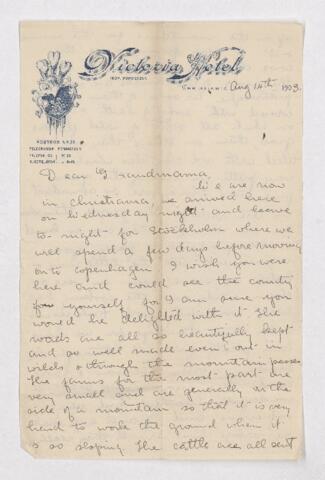 Victoria Hotel
Christiania, Aug 14th 1903.
Dear Grandmama,
We are now
in Christiania, we arrived here
on Wednesday night and leave
to-night for Stockholm where we
will spend a few days before moving
on to Copenhagen. I wish you were
here and could see the country
for yourself for I am sure you
would be delighted with it. The
roads are all so beautifully kept
and so well made even out in
wilds & through the mountain passes
The farms for the most part are
very small and are generally on the
side of a mountain so that it is very
hard to work the ground when it
is so sloping. The cattle are all sent